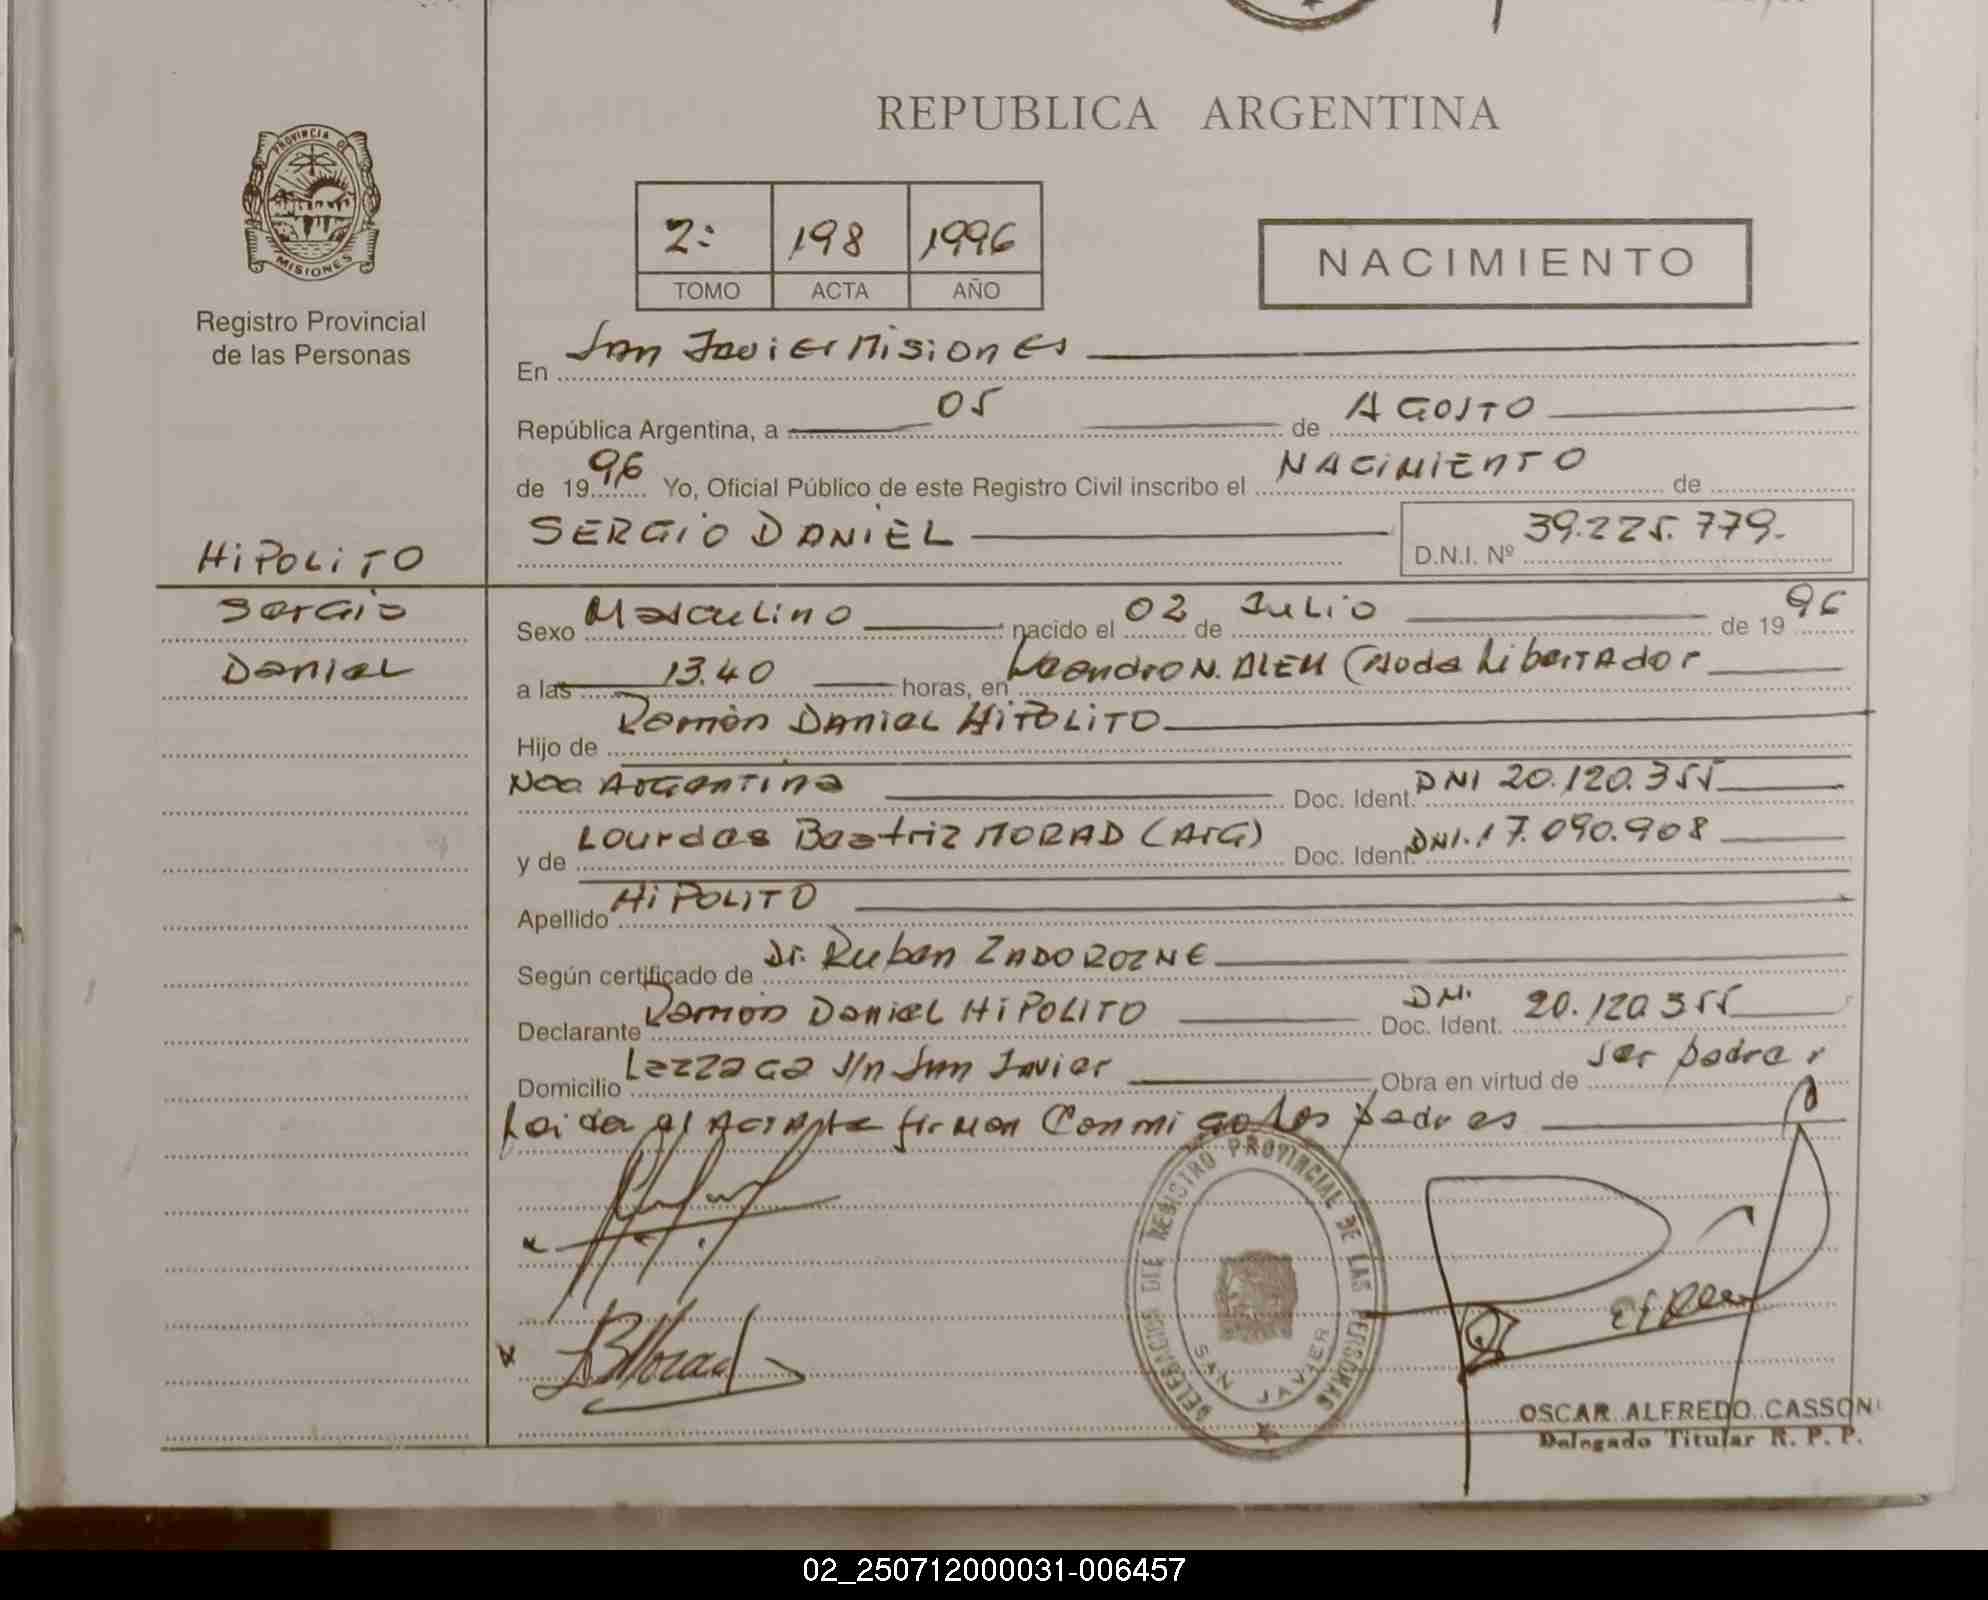 REPUBLICA ARGENTINA
PROVINCIA DE
MISIONES
Registro Provincial
de las Personas
2: 198 1996
TOMO ACTA AÑO
NACIMIENTO
En San Javier Misiones
República Argentina, a 05 de AGOSTO
de 1996 Yo, Oficial Público de este Registro Civil inscribo el NACIMIENTO de
SERGIO DANIEL D.N.I. Nº 39.225.779.
HIPOLITO
Sergio
Daniel
Sexo Masculino nacido el 02 de Julio de 1996
a las 13.40 horas, en Leandro N. ALEM (Avda Libertador
Hijo de Ramón DANIEL HIPOLITO
Nac. ARGENTINA Doc. Ident. DNI 20.120.355
y de Lourdes Beatriz MORAD (Arg) Doc. Ident. DNI.17.090.908
Apellido HIPOLITO
Según certificado de Dr. Ruben ZADOROZNE
Declarante Ramón Daniel HIPOLITO Doc. Ident. DNI. 20.120.355
Domicilio Lezzaga s/n San Javier Obra en virtud de ser padre y
Leida el Acta la firman Conmigo los padres
DELEGACION DEL REGISTRO PROVINCIAL DE LAS PERSONAS
SAN JAVIER
LBMorad
OSCAR ALFREDO CASSONI
Delegado Titular R. P. P.
02_250712000031-006457